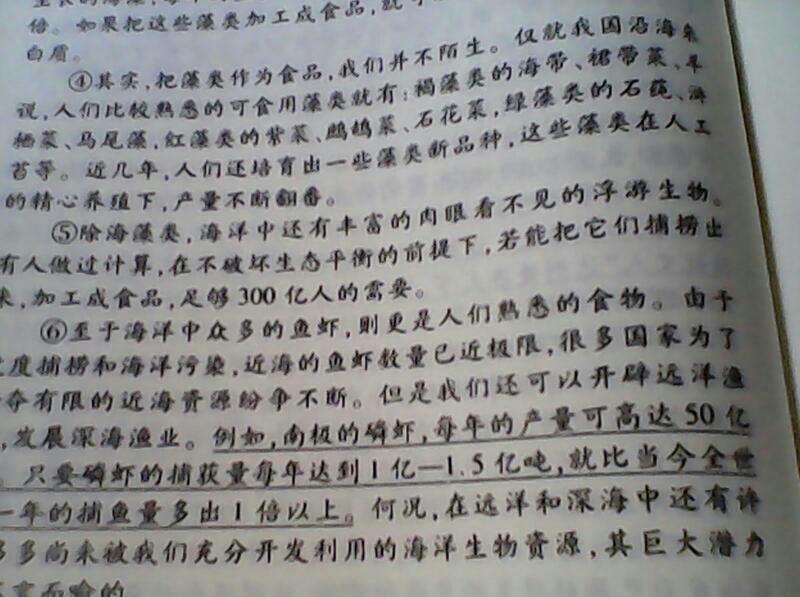 倍。如果把这些藻类加工成食品,就
白眉。
④其实,把藻类作为食品,我们并不陌生。仅就我国沿海来
说,人们比较熟悉的可食用藻类就有:褐藻类的海带、裙带菜、羊
栖菜、马尾藻,红藻类的紫菜、鹧鸪菜、石花菜,绿藻类的石莼、浒
苔等。近几年,人们还培育出一些藻类新品种,这些藻类在人工
的精心养殖下,产量不断翻番。
⑤除海藻类,海洋中还有丰富的肉眼看不见的浮游生物。
有人做过计算,在不破坏生态平衡的前提下,若能把它们捕捞出
来,加工成食品,足够300亿人的需要。
⑥至于海洋中众多的鱼虾,则更是人们熟悉的食物。由于
度捕捞和海洋污染,近海的鱼虾数量已近极限,很多国家为了
夺有限的近海资源纷争不断。但是我们还可以开辟远洋渔
,发展深海渔业。例如,南极的磷虾,每年的产量可高达50亿
。只要磷虾的捕获量每年达到1亿—1.5亿吨,就比当今全世
一年的捕鱼量多出1倍以上。何况,在远洋和深海中还有许
多多尚未被我们充分开发利用的海洋生物资源,其巨大潜力
言而喻的